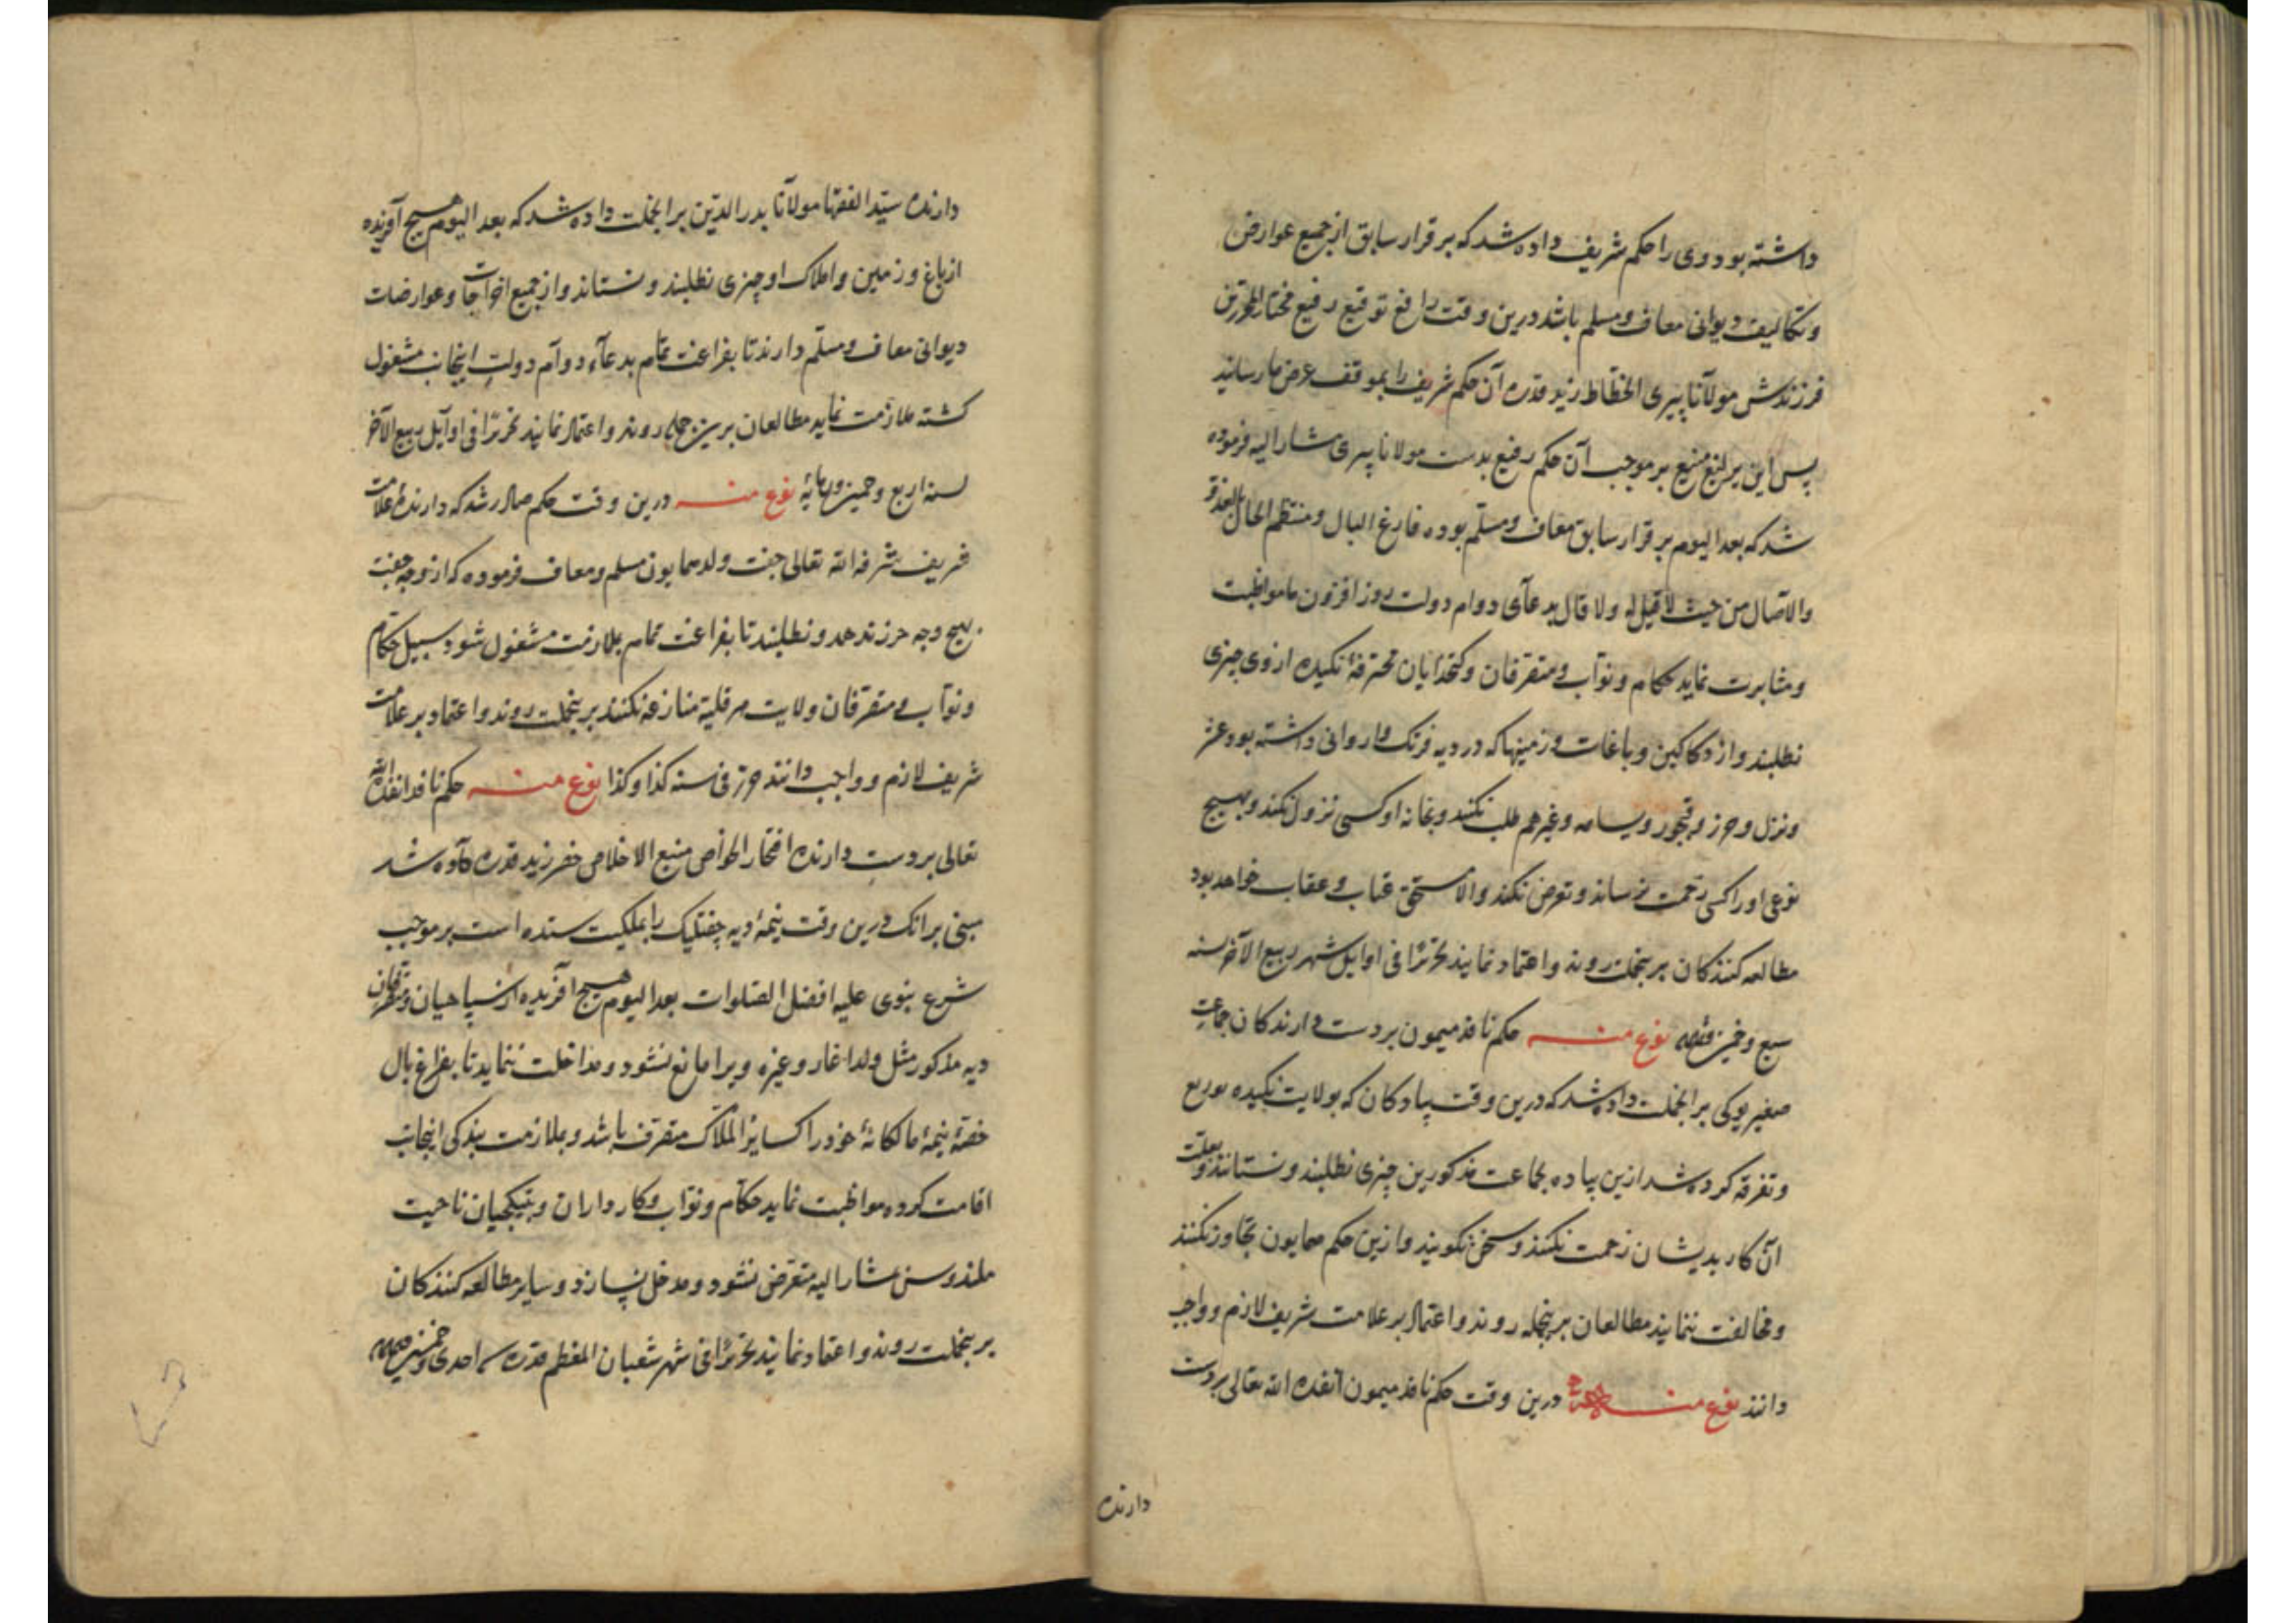 داشته بود وی را حکم شریف داده شد که بر قرار سابق از جمیع عوارض
و تکالیف دیوانی معاف و مسلم باشد درین وقت رافع توقیع رفیع مختار المحررین
فرزندش مولانا پیری الخطاط زید قدره آن حکم شریف را بموقف عرض ما رسانید
پس این یرلیغ منیع بر موجب آن حکم رفیع بدست مولانا پیری مشار الیه فرموده
شد که بعد الیوم بر قرار سابق معاف و مسلم بوده فارغ البال و منتظم الحال بالغدو
والآصال من حیث لا قیل له ولا قال بدعآی دوام دولت روز افزون ما مواظبت
و مثابرت نماید حکام و نواب و متصرفان و کتخدایان نکیده از وی چیزی
نطلبند و از دکاکین و باغات و زمینها که در دیه فرنک و اروانی داشته بود عشر
و نزل و حرز و قبجور و یسامه و غیرهم طلب نکنند و بخانه او کسی نزول نکند و بهیچ
نوعی او را کسی زحمت نرساند و تعرض نکند والا مستحق عتاب و عقاب خواهد بود
مطالعه کنندکان برینجملت روند و اعتماد نمایند تحریرا فی اوایل شهر ربیع الآخر سنه
سبع و خمسین نوع منه حکم نافذ میمون بر دست دارندکان جماعت
صغیر یوکی برانجملت داده شد که درین وقت پیادکان که بولایت نکیده توزیع
و تفرقه کرده شد ازین پیاده بجماعت مذکورین چیزی نطلبند و نستانند و بعلت
آن کار بدیشان زحمت نکنند و سخن نکویند و ازین حکم همایون تجاوز نکنند
و مخالفت ننمایند مطالعان برینجمله روند و اعتماد بر علامت شریف لازم و واجب
دانند نوع منه درین وقت حکم نافذ میمون انفذه الله تعالی بر دست
دارنده
دارنده سید الفقها مولانا بدر الدین برانجملت داده شد که بعد الیوم هیچ آفریده
از باغ و زمین و املاک او چیزی نطلبند و نستانند و از جمیع اخراجات و عوارضات
دیوانی معاف و مسلم دارند تا بفراغت تمام بدعآء دوام دولت اینجانب مشغول
کشته ملازمت نماید مطالعان برین جمله روند و اعتماد نمایند تحریرا فی اوآیل ربیع الآخر
لسنه اربع و خمسین و ثمانمائه نوع منه درین وقت حکم صادر شد که دارندۀ علامت
شریف شرفه الله تعالی جفت ولد همایون مسلم و معاف فرموده که از وجه جفت
بهیچ وجه حرز ندهد و نطلبند تا بفراغت تمام بملازمت مشغول شود سبیل حکام
و نوآب و متصرفان ولایت منازعه نکنند برینجملت روند و اعتماد بر علامت
شریف لازم و واجب دانند حرر فی سنه کذا و کذا نوع منه حکم نافذ انفذه الله
تعالی بر دست دارنده افتخار الخواص منبع الاخلاص خضر زید قدره داده شد
مبنی برانک درین وقت نیمۀ دیه چفتلیک را بملکیت ستده است بر موجب
شرع نبوی علیه افضل الصلوات بعد الیوم هیچ آفریده از سپاهیان و متصرفان
دیه مذکور مثل ولد اغار و غیره ویرا مانع نشود و مداخلت ننماید تا بفراغ بال
حصۀ نیمۀ مالکانۀ خود را کسایر الملاک متصرف باشد و بملازمت بندکی اینجانب
اقامت کرده مواظبت نماید حکام و نواب و کارداران و بتیکجیان ناحیت
مشار الیه متعرض نشود و مدخل نسازد و سایر مطالعه کنندکان
برینجملت روند و اعتماد نمایند تحریرا فی شهر شعبان المعظم قدره سنه احدی و خمسین